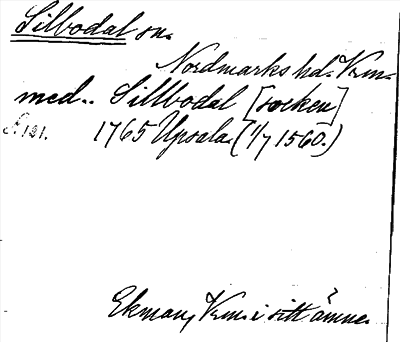 Silbodal sn.
Nordmarks hd. Vrm.
med.. Sillbodal [socken]
S. 121. 1765 Upsala. (1/7 1560.)
Ekman, Vrm. i sitt ämne.